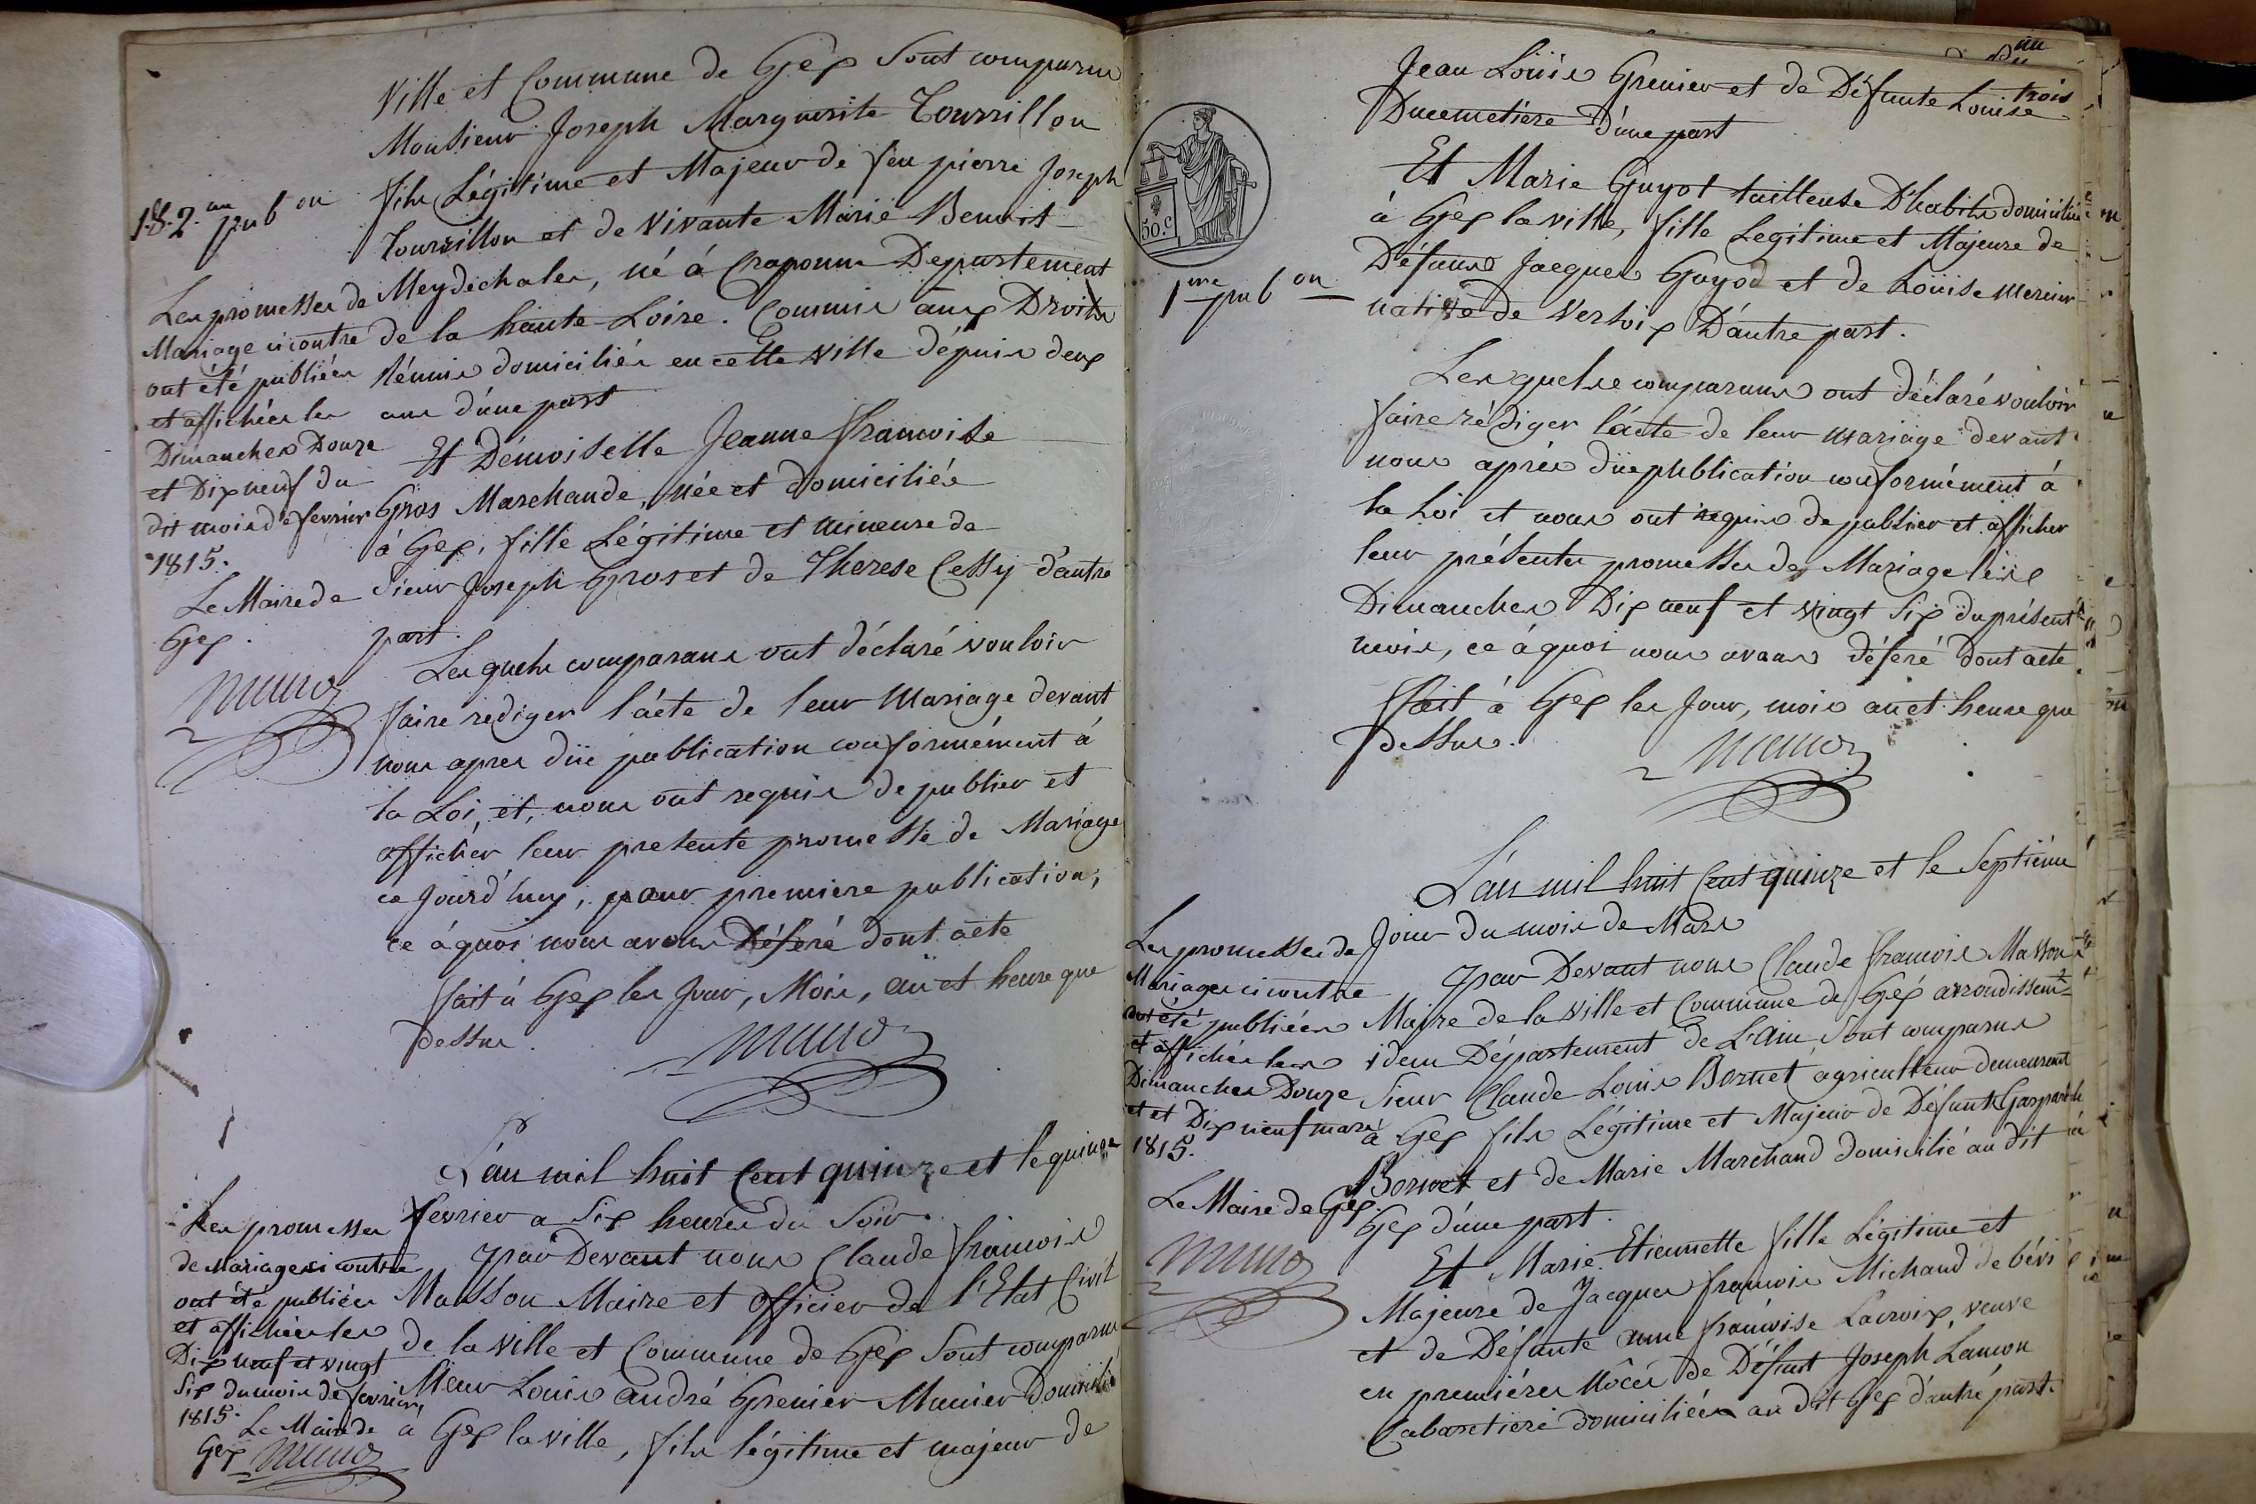 Ville et Commune de Gex Sont comparus
Monsieur Joseph Marguerite Tourrillon
fils Légitime et Majeur de feu pierre Joseph
Tourrillon et de Vivante Marie Benoit
Meydechales, né à Craponne Departement
de la haute Loire. Commis aux Droits
Réunis domiciliés en cette Ville dépuis deux
ans d'une part
Et Démoiselle Jeanne françoise
Gros Marchande, née et domiciliée
à Gex, fille Légitime et mineure de
Sieur Joseph Gros et de Therese Cessy d'autre
part.
Lesquels comparans ont déclaré vouloir
faire rediger l'acte de leur Mariage devant
nous apres düe publication conformément à
la Loi, et, nous ont requis de publier et
afficher leur presente promesse de Mariage
ce Jourd'huy, pour premiere publication,
ce à quoi nous avons Déféré dont acte
fait à Gex les Jour, Mois, an et heure que
dessus.
L'an mil huit Cent quinze et le quinze
fevrier a Six heures du Soir.
par Devant nous Claude françois
Masson Maire et officier de l'Etat Civil
de la Ville et Commune de Gex Sont comparus
Sieur Louis andré Grenier Munier Domicilié
à Gex la ville, fils légitime et majeur de
1&2 me pub on
Les promesses de
Mariage ci contre
ont été publiées
et affichées les
Dimanches Douze
et Dix neuf du
dit mois de fevrier
1815.
Le Maire de
Gex.
Les promesses
de Mariages ci contre
ont été publiées
et affichées les
Dix neuf et vingt
Six du mois de fevrier
1815.
Le Maire de
Gex
trois
Jean Loüis Grenier et de Défunte Loüise
Ducemetière d'une part
Et Marie Guyot tailleuse D'habits domiciliée
à Gex la ville, fille Legitime et Majeure de
Défunt Jacques Guyot et de Loüise mercier
native de Versoix D'autre part.
Lesquels comparans ont déclaré vouloir
faire rédiger l'acte de leur mariage devant
nous aprés düe publication conformément à
la Loi et nous ont requis de publier et afficher
leur présentes promesses de Mariage les
Dimanches Dix neuf et vingt Six du présent
mois, ce à quoi nous avons déféré dont acte
fait à Gex les Jour, mois an et heure que
dessus.
50.C
1 ere pub on
L'an mil huit Cent quinze et le Septiéme
Jour du mois de Mars
par Devant nous Claude françois Masson
Maire de la Ville et Commune de Gex arrondissemt
idem Département de L'Ain Sont comparus
Sieur Claude Louis Bornet agriculteur demeurant
à Gex fils Légitime et Majeur de Défunt Gaspard
Bornet et de Marie Marchand domicilié au dit
Gex d'une part.
Et Marie Etiennette fille Légitime et
Majeure de Jacques françois Michaud
et de Défunte anne françoise Lacroix, veuve
en premiéres Nôces de Défunt Joseph Lançon
Cabaretiere domiciliée au dit Gex d'autre part.
Les promesses de
Mariages ci contre
ont été publiées
et affichées les
Dimanches Douze
et Dix neuf mars
1815.
Le Maire de Gex.